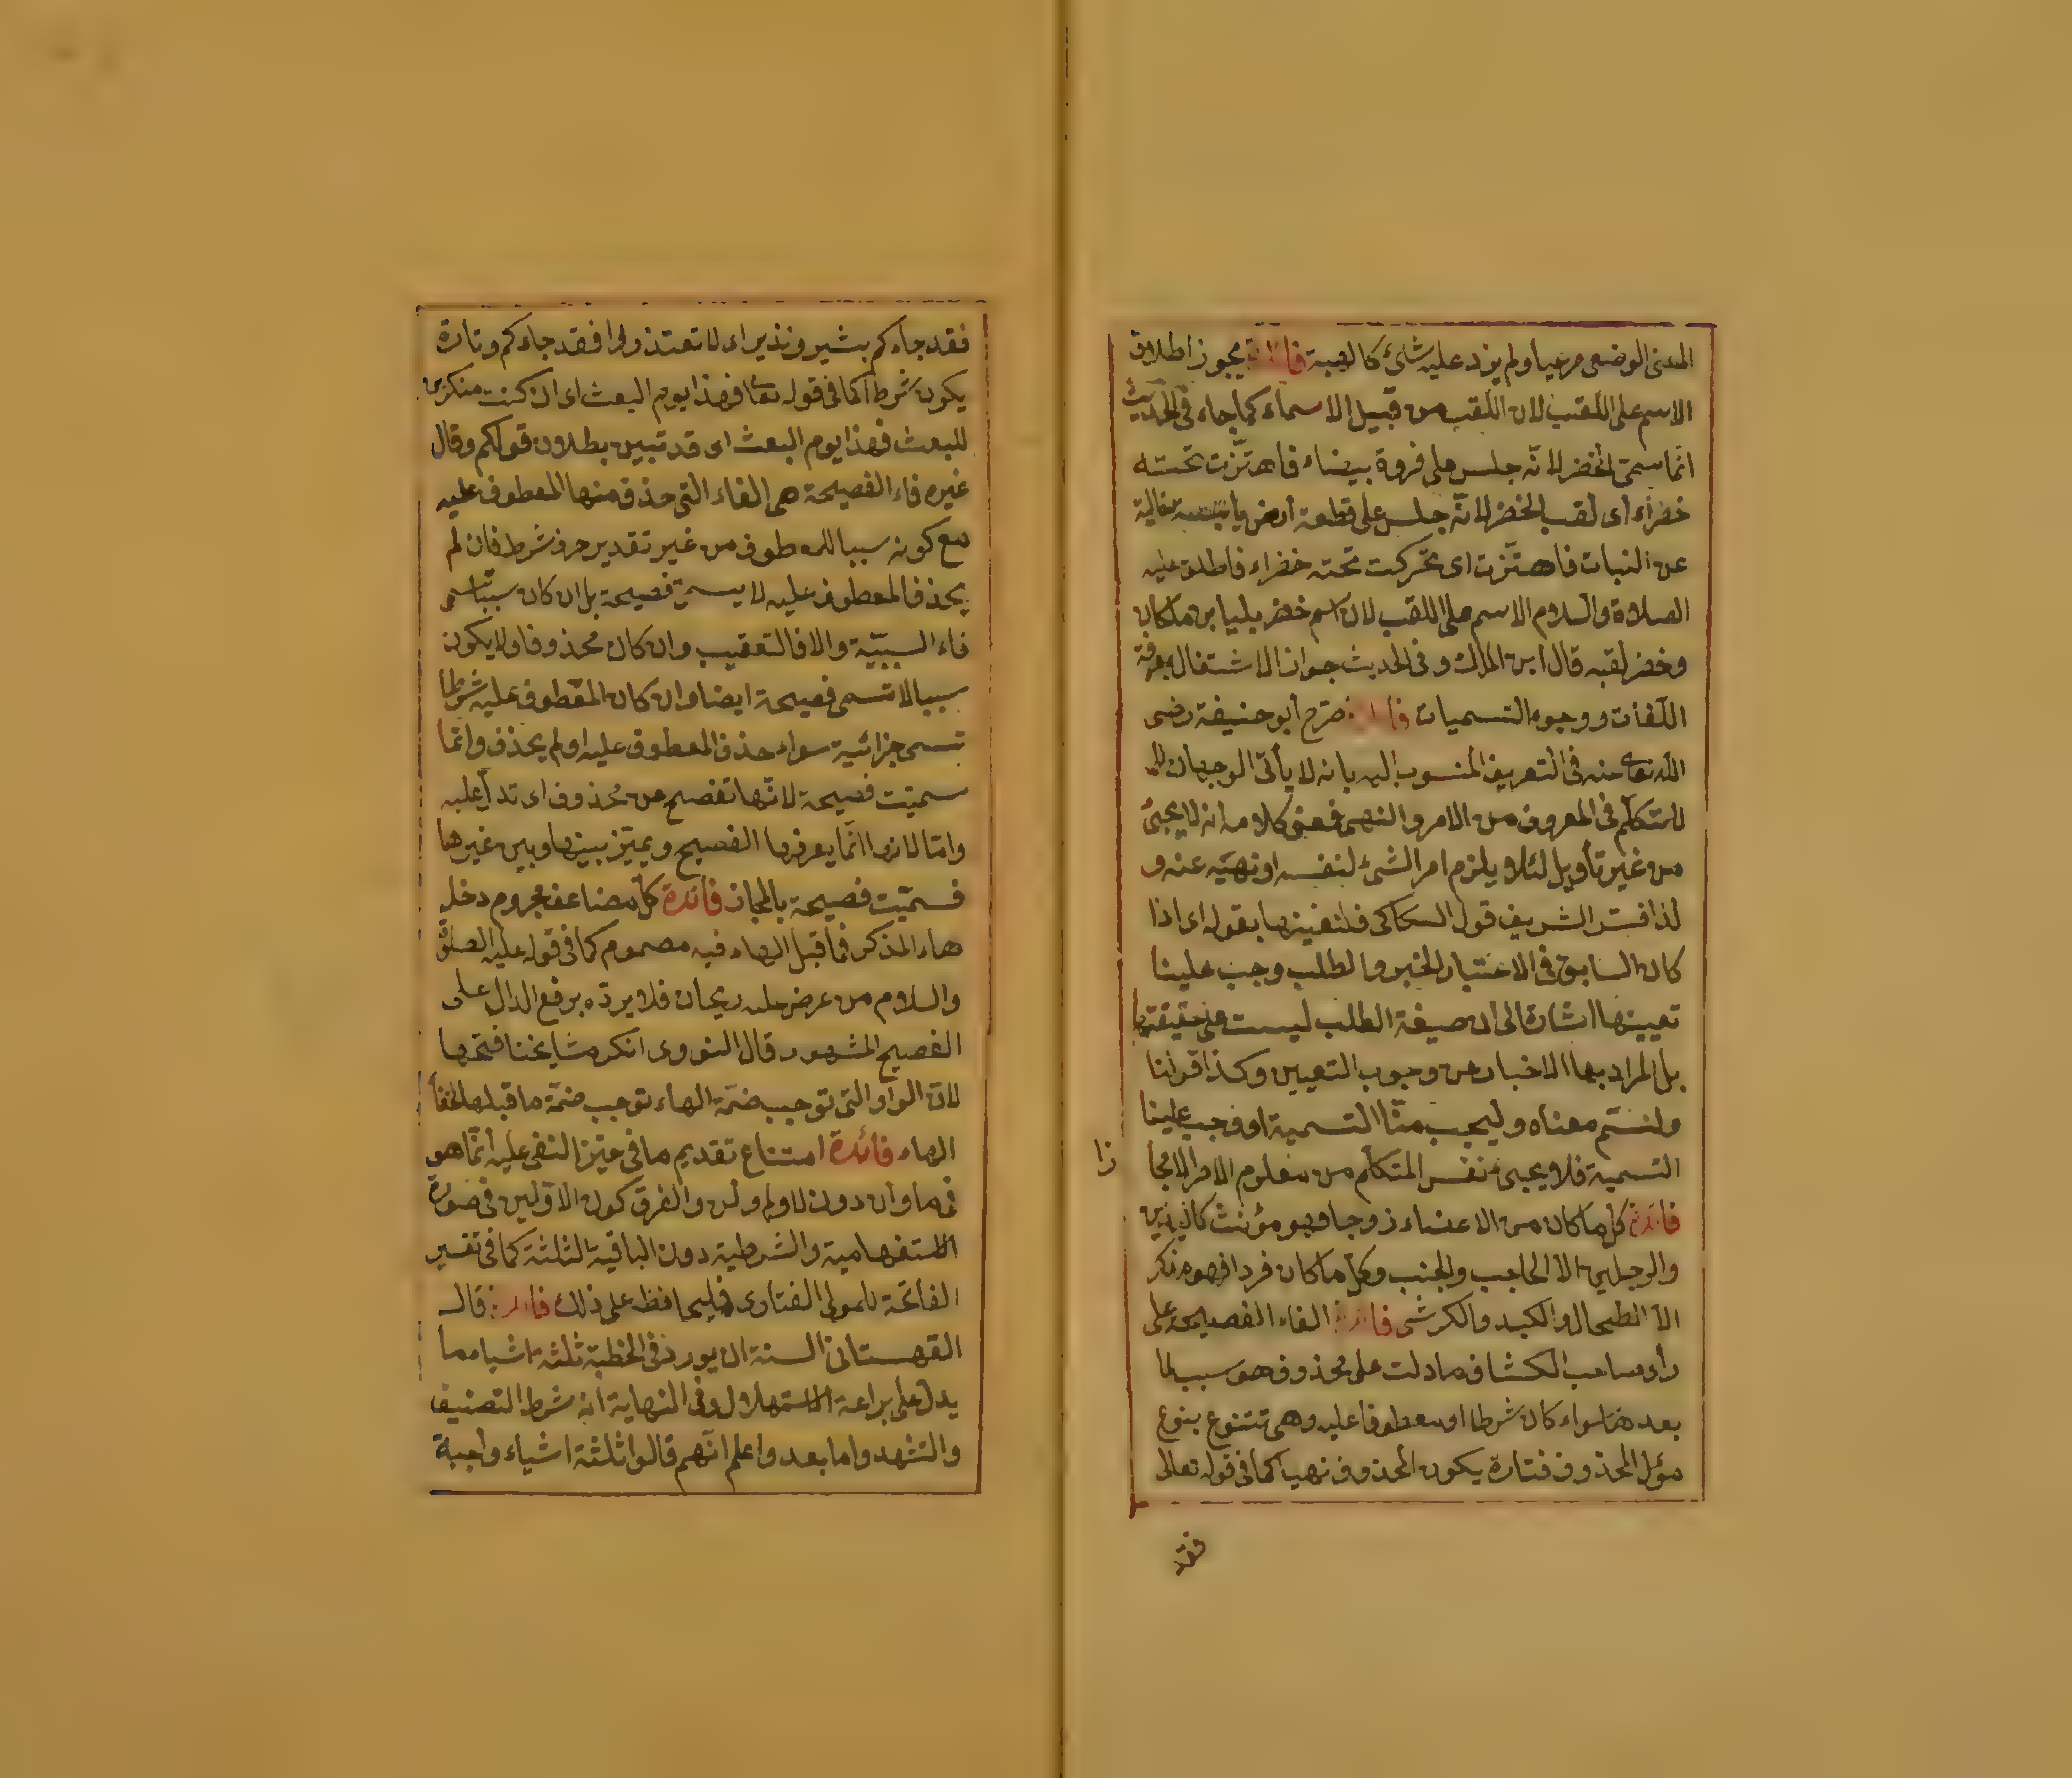 المعنى الوضعى مرعيا ولم يزد عليه شئ كالهبة فائدة يجوز اطلاق
الاسم على اللقب لان اللقب من قبيل الاسماء كما جاء فى الحديث
انما سمى الخضر لانه جلس على فروة بيضاء فاهتزت تحته
خضراء أى لقب الخضر لانه جلس على قطعة أرض يابسة خالية
عن النبات فاهتزت اى تحركت تحته خضراء فاطلق عليه
الصلاة والسلام الاسم على اللقب لان اسم خضر بليا بن ملكان
وخضر لقبه قال ابن الملك وفى الحديث جواز الاشتغال بمعرفة
اللغات ووجوه التسميات فائدة صرح أبو حنيفة رضى
الله تعالى عنه فى التعريف المنسوب اليه بانه لا يأتى الوجهان
للمتكلم فى المعروف من الامر والنهى فمعنى كلامه انه لا يجئ
من غير تأويل لئلا يلزم امر الشئ لنفسه او نهيه عنه و
لذا فسر الشريف قول السكاكى فلنعينها بقوله اى اذا
كان السابق فى الاعتبار الخبر والطلب وجب علينا
تعيينها اشارة الى ان صيغة الطلب ليست على حقيقتها
بل المراد بها الاخبار عن وجوب التعيين وكذا قولنا
ولنسم معناه وليجب منا التسمية او وجب علينا
التسمية فلا يجئ نفس المتكلم من معلوم الامر الا مجا
زا
فائدة كل ما كان من الاعضاء زوجا فهو مؤنث كاليدين
والرجلين الا الحاجب والجنب وكل ما كان فردا فهو مذكر
الا الطحال والكبد والكرش فائدة الفاء الفصيحة على
رأى صاحب الكشاف ما دلت على محذوف هو سبب لما
بعدها سواء كان شرطا او معطوفا عليه وهى تتنوع بنوع
مؤل المحذوف فتارة يكون المحذوف نهيا كما فى قوله تعالى
فقد
فقد جاءكم بشير ونذير اى لا تعتذروا فقد جاءكم وتارة
يكون شرطا كما فى قوله تعا فهذا يوم البعث اى ان كنت منكرى
للبعث فهذا يوم البعث اى قد تبين بطلان قولكم وقال
غيره فاء الفصيحة هى الفاء التى حذف منها المعطوف عليه
مع كونه سببا للمعطوف من غير تقدير حرف شرط فان لم
يحذف المعطوف عليه لا يسمى فصيحة بل ان كان سببا سمى
فاء السببية والا فالتعقيب وان كان محذوفا ولا يكون
سببا لا تسمى فصيحة ايضا وان كان المعطوف عليه شرطا
تسمى جزائية سواء حذف المعطوف عليه او لم يحذف وانما
سميت فصيحة لانها تفصح عن محذوف اى تدل عليه
واما لانها انما يعرفها الفصيح ويميز بينها وبين غيرها
فسميت فصيحة بالمجاز فائدة كل مضاعف مجزوم دخله
هاء المذكر فما قبل الهاء فيه مضموم كما فى قوله عليه الصلوة
والسلام من عرض عليه ريحان فلا يرده برفع الدال على
الفصيح المشهور قال النووى انكر مشايخنا فتحها
لان الواو التى توجب ضمة الهاء توجب ضمة ما قبلها لخفا
الهاء فائدة امتناع تقديم ما فى حيز النفى عليه انما هو
فى ما وان دون لا ولم ولن والفرق كون الاولين فى صورة
الاستفهامية والشرطية دون الباقية الثلثة كما فى تفسير
الفاتحة للمولى الفنارى فليحافظ على ذلك فائدة قال
القهستانى السنة ان يورد فى الخطبة ثلثة اشياء ما
يدل على براعة الاستهلال وفى النهاية انه شرط التصنيف
والتشهد واما بعد واعلم انهم قالوا ثلثة اشياء واجبة